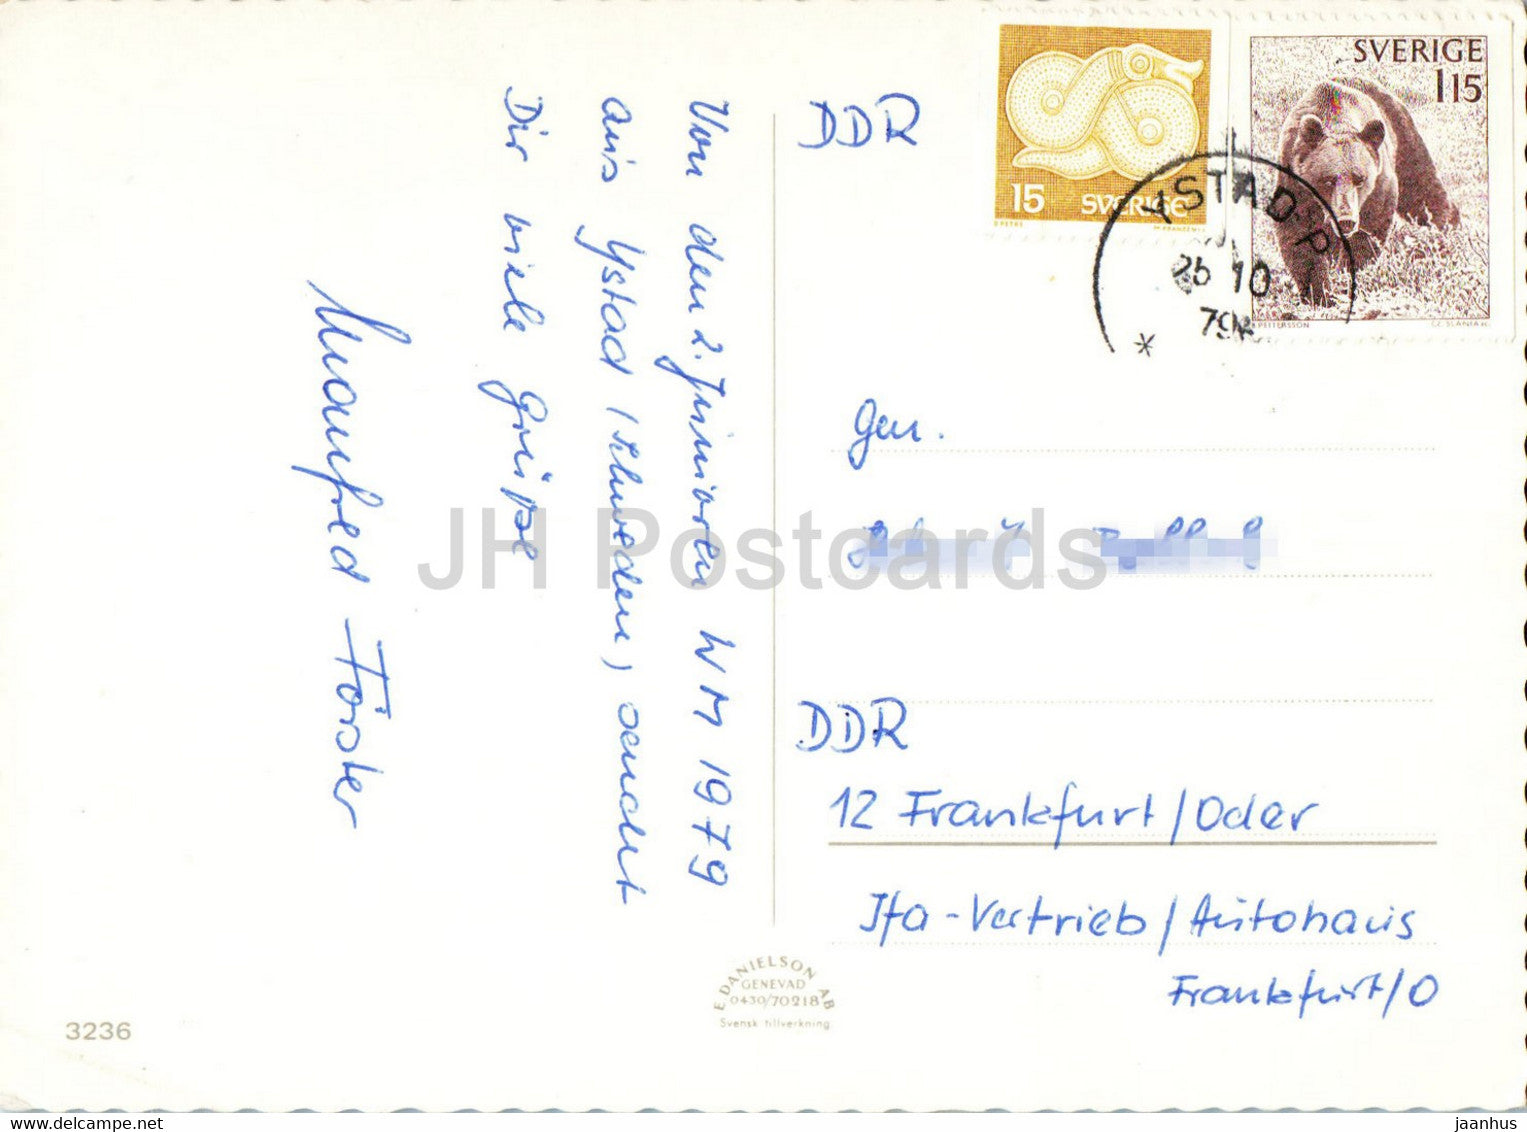 Von den 2. Junioren WM 1979
aus Ystad (Schweden) sendet
Dir viele Grüße
Manfred Förster
DDR
15 SVERIGE
SVERIGE
1,15
YSTAD-P
26 10
79
CZ. SLANIA
Gen.
DDR
12 Frankfurt/Oder
Ifa-Vertrieb/Autohaus
Frankfurt/O
E. DANIELSON AB
GENEVAD
0430/70218
Svensk tillverkning
3236
JH Postcards
www.delcampe.net
jaanhus